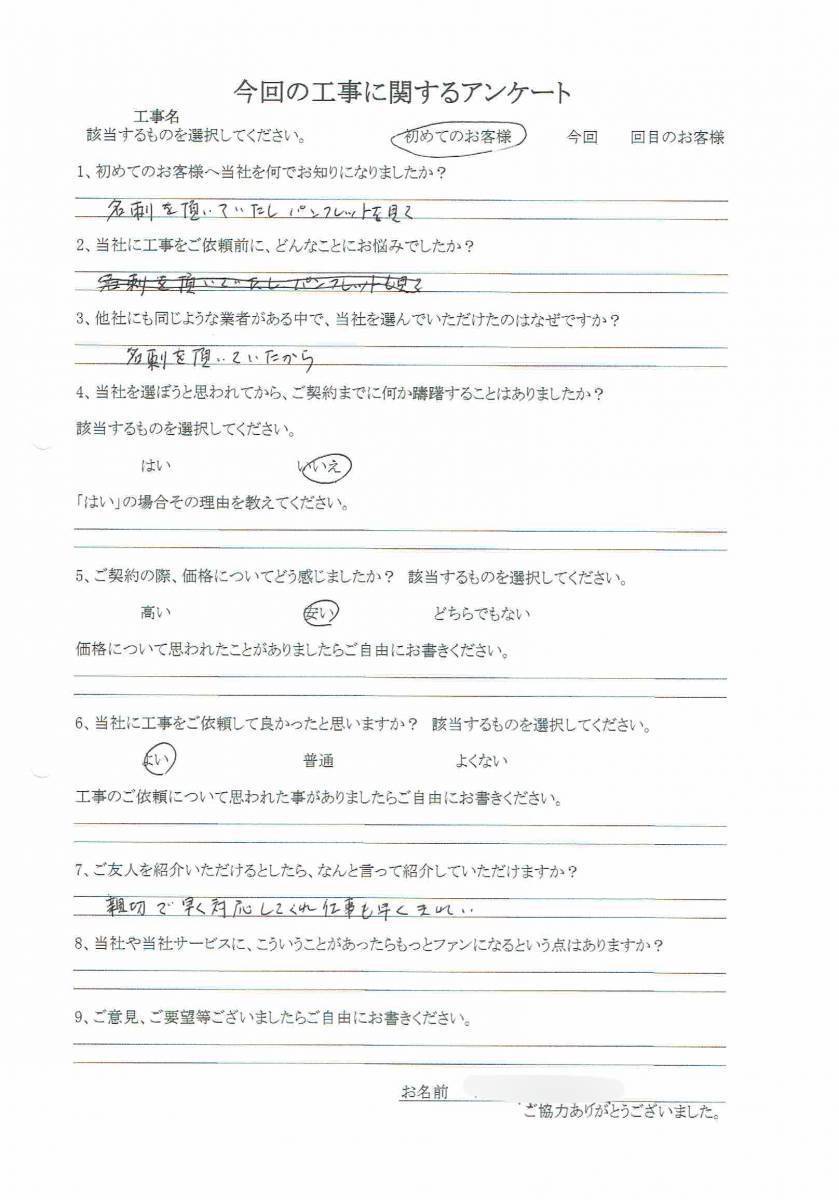 今回の工事に関するアンケート
工事名
該当するものを選択してください。 初めてのお客様 今回 回目のお客様
1、初めてのお客様へ当社を何でお知りになりましたか?
名刺を頂いていたし パンフレットを見て
2、当社に工事をご依頼前に、どんなことにお悩みでしたか?
名刺を頂いていたし パンフレットも見て
3、他社にも同じような業者がある中で、当社を選んでいただけたのはなぜですか?
名刺を頂いていたから
4、当社を選ぼうと思われてから、ご契約までに何か躊躇することはありましたか?
該当するものを選択してください。
はい いいえ
「はい」の場合その理由を教えてください。
5、ご契約の際、価格についてどう感じましたか? 該当するものを選択してください。
高い 安い どちらでもない
価格について思われたことがありましたらご自由にお書きください。
6、当社に工事をご依頼して良かったと思いますか? 該当するものを選択してください。
よい 普通 よくない
工事のご依頼について思われた事がありましたらご自由にお書きください。
7、ご友人を紹介いただけるとしたら、なんと言って紹介していただけますか?
親切で早く対応してくれ仕事も早くきれい
8、当社や当社サービスに、こういうことがあったらもっとファンになるという点はありますか?
9、ご意見、ご要望等ございましたらご自由にお書きください。
お名前
ご協力ありがとうございました。